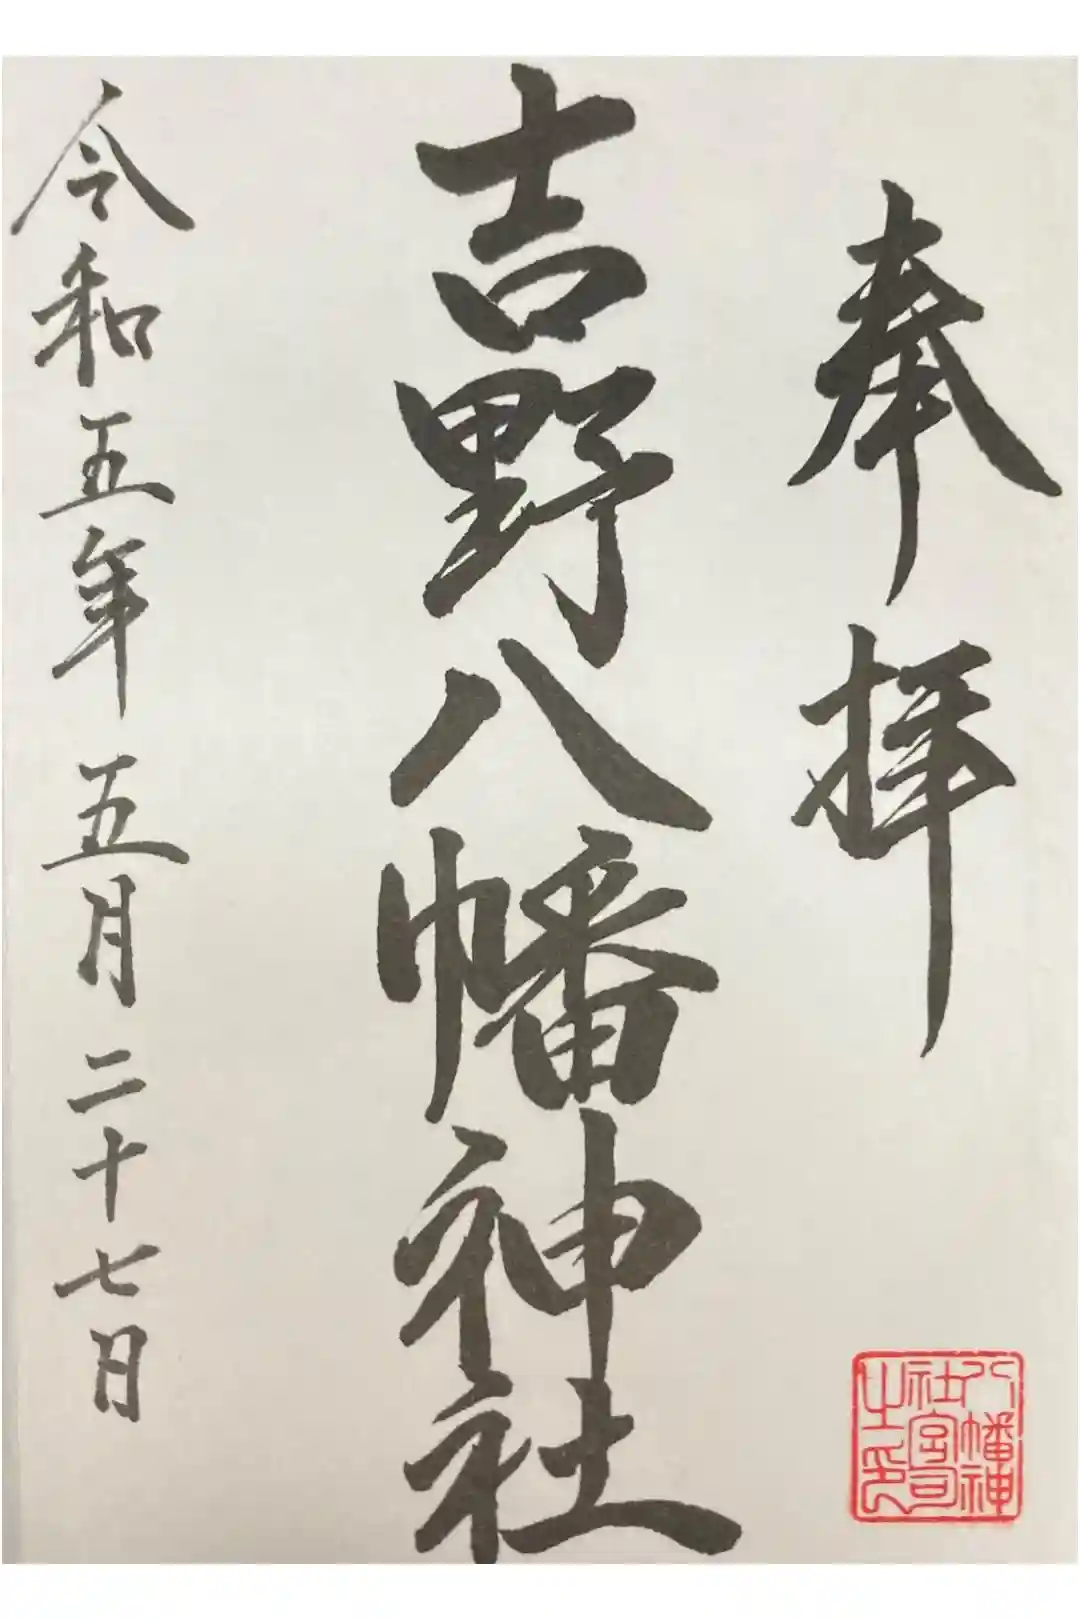 奉拝
吉野八幡神社
令和五年五月二十七日
八幡神
社宮司
之印